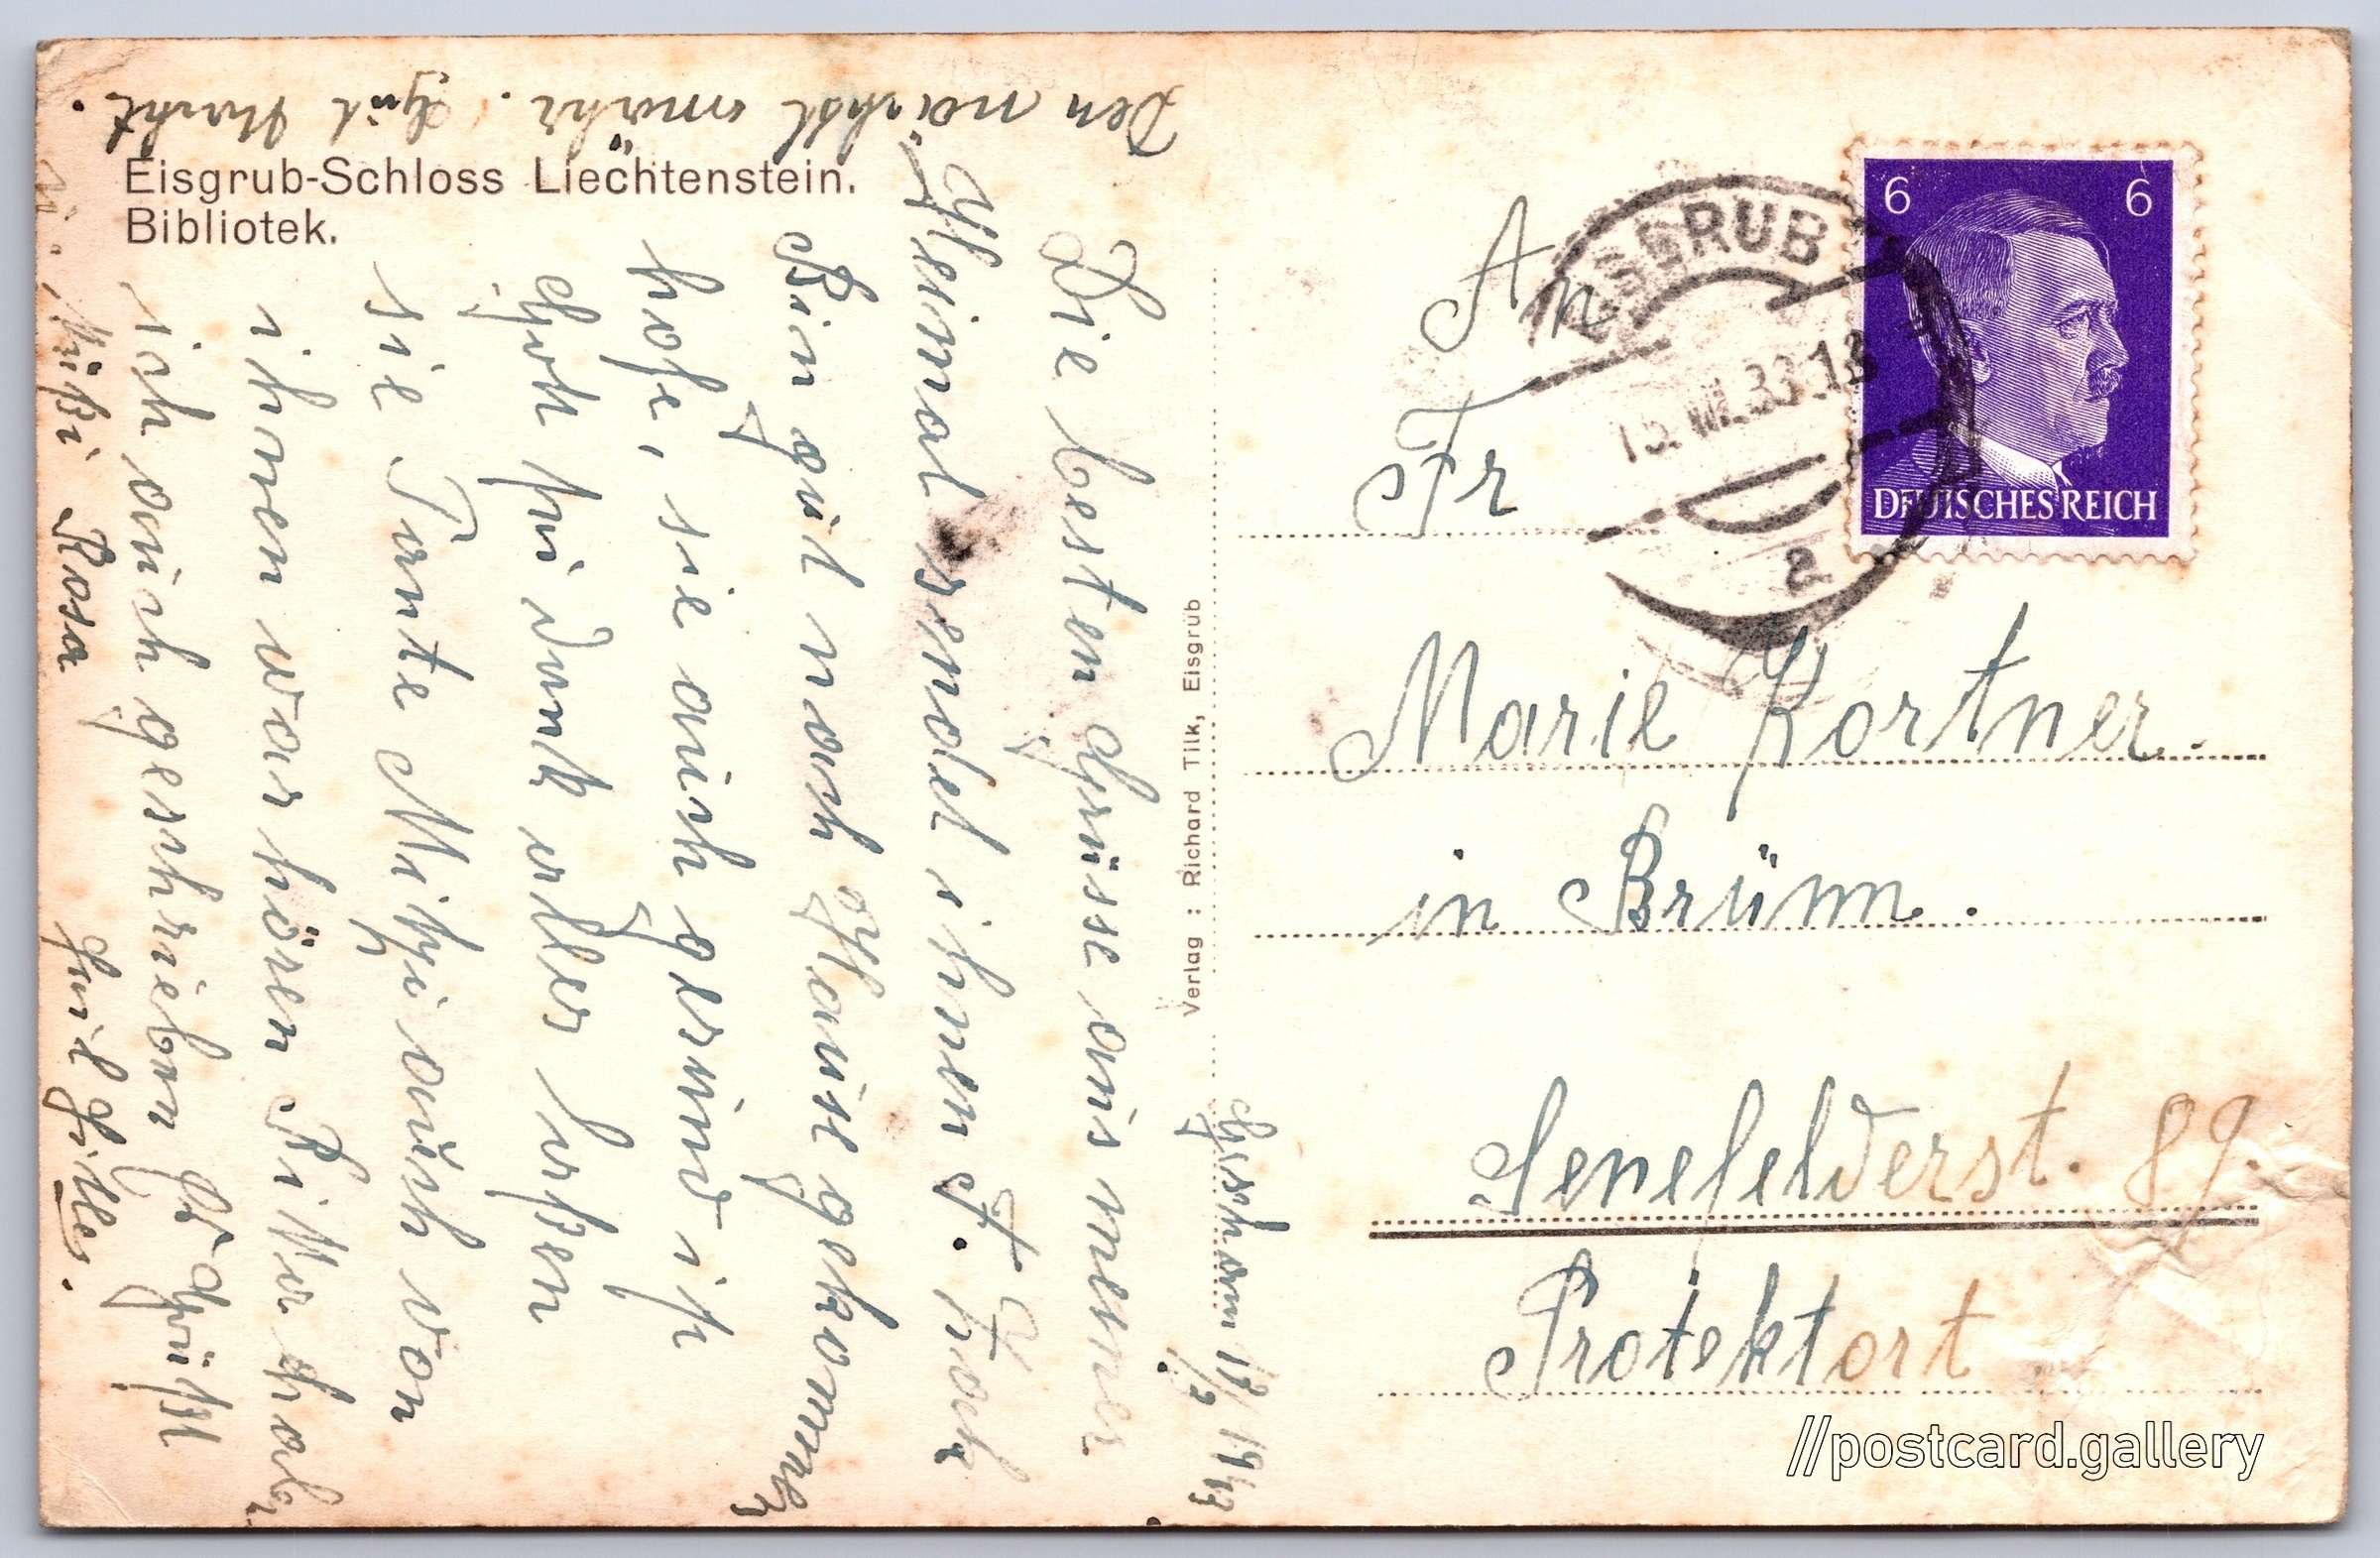 Eisgrub-Schloss Liechtenstein.
Bibliotek.
Geschrom 13/2 1943
Die besten Grüsse aus meiner
Heimat sendet ihnen F.
Bin gut nach Hause gekommen
hofe, sie auch gesund ist
Gott sei dank alles
sie Tante Mitzi auch von
ihnen was hören Bitte
ich auch geschrieben Grüßt
Mitzi Rosa
Den nächst mahr. Gut Nacht.
Verlag : Richard Tilk, Eisgrub
An
Fr
Marie Kortner.
in Brünn.
Senefelderst. 89.
Protektort
EISGRUB
15. VII. 33. 13
a
6 6
DEUTSCHES REICH
//postcard.gallery